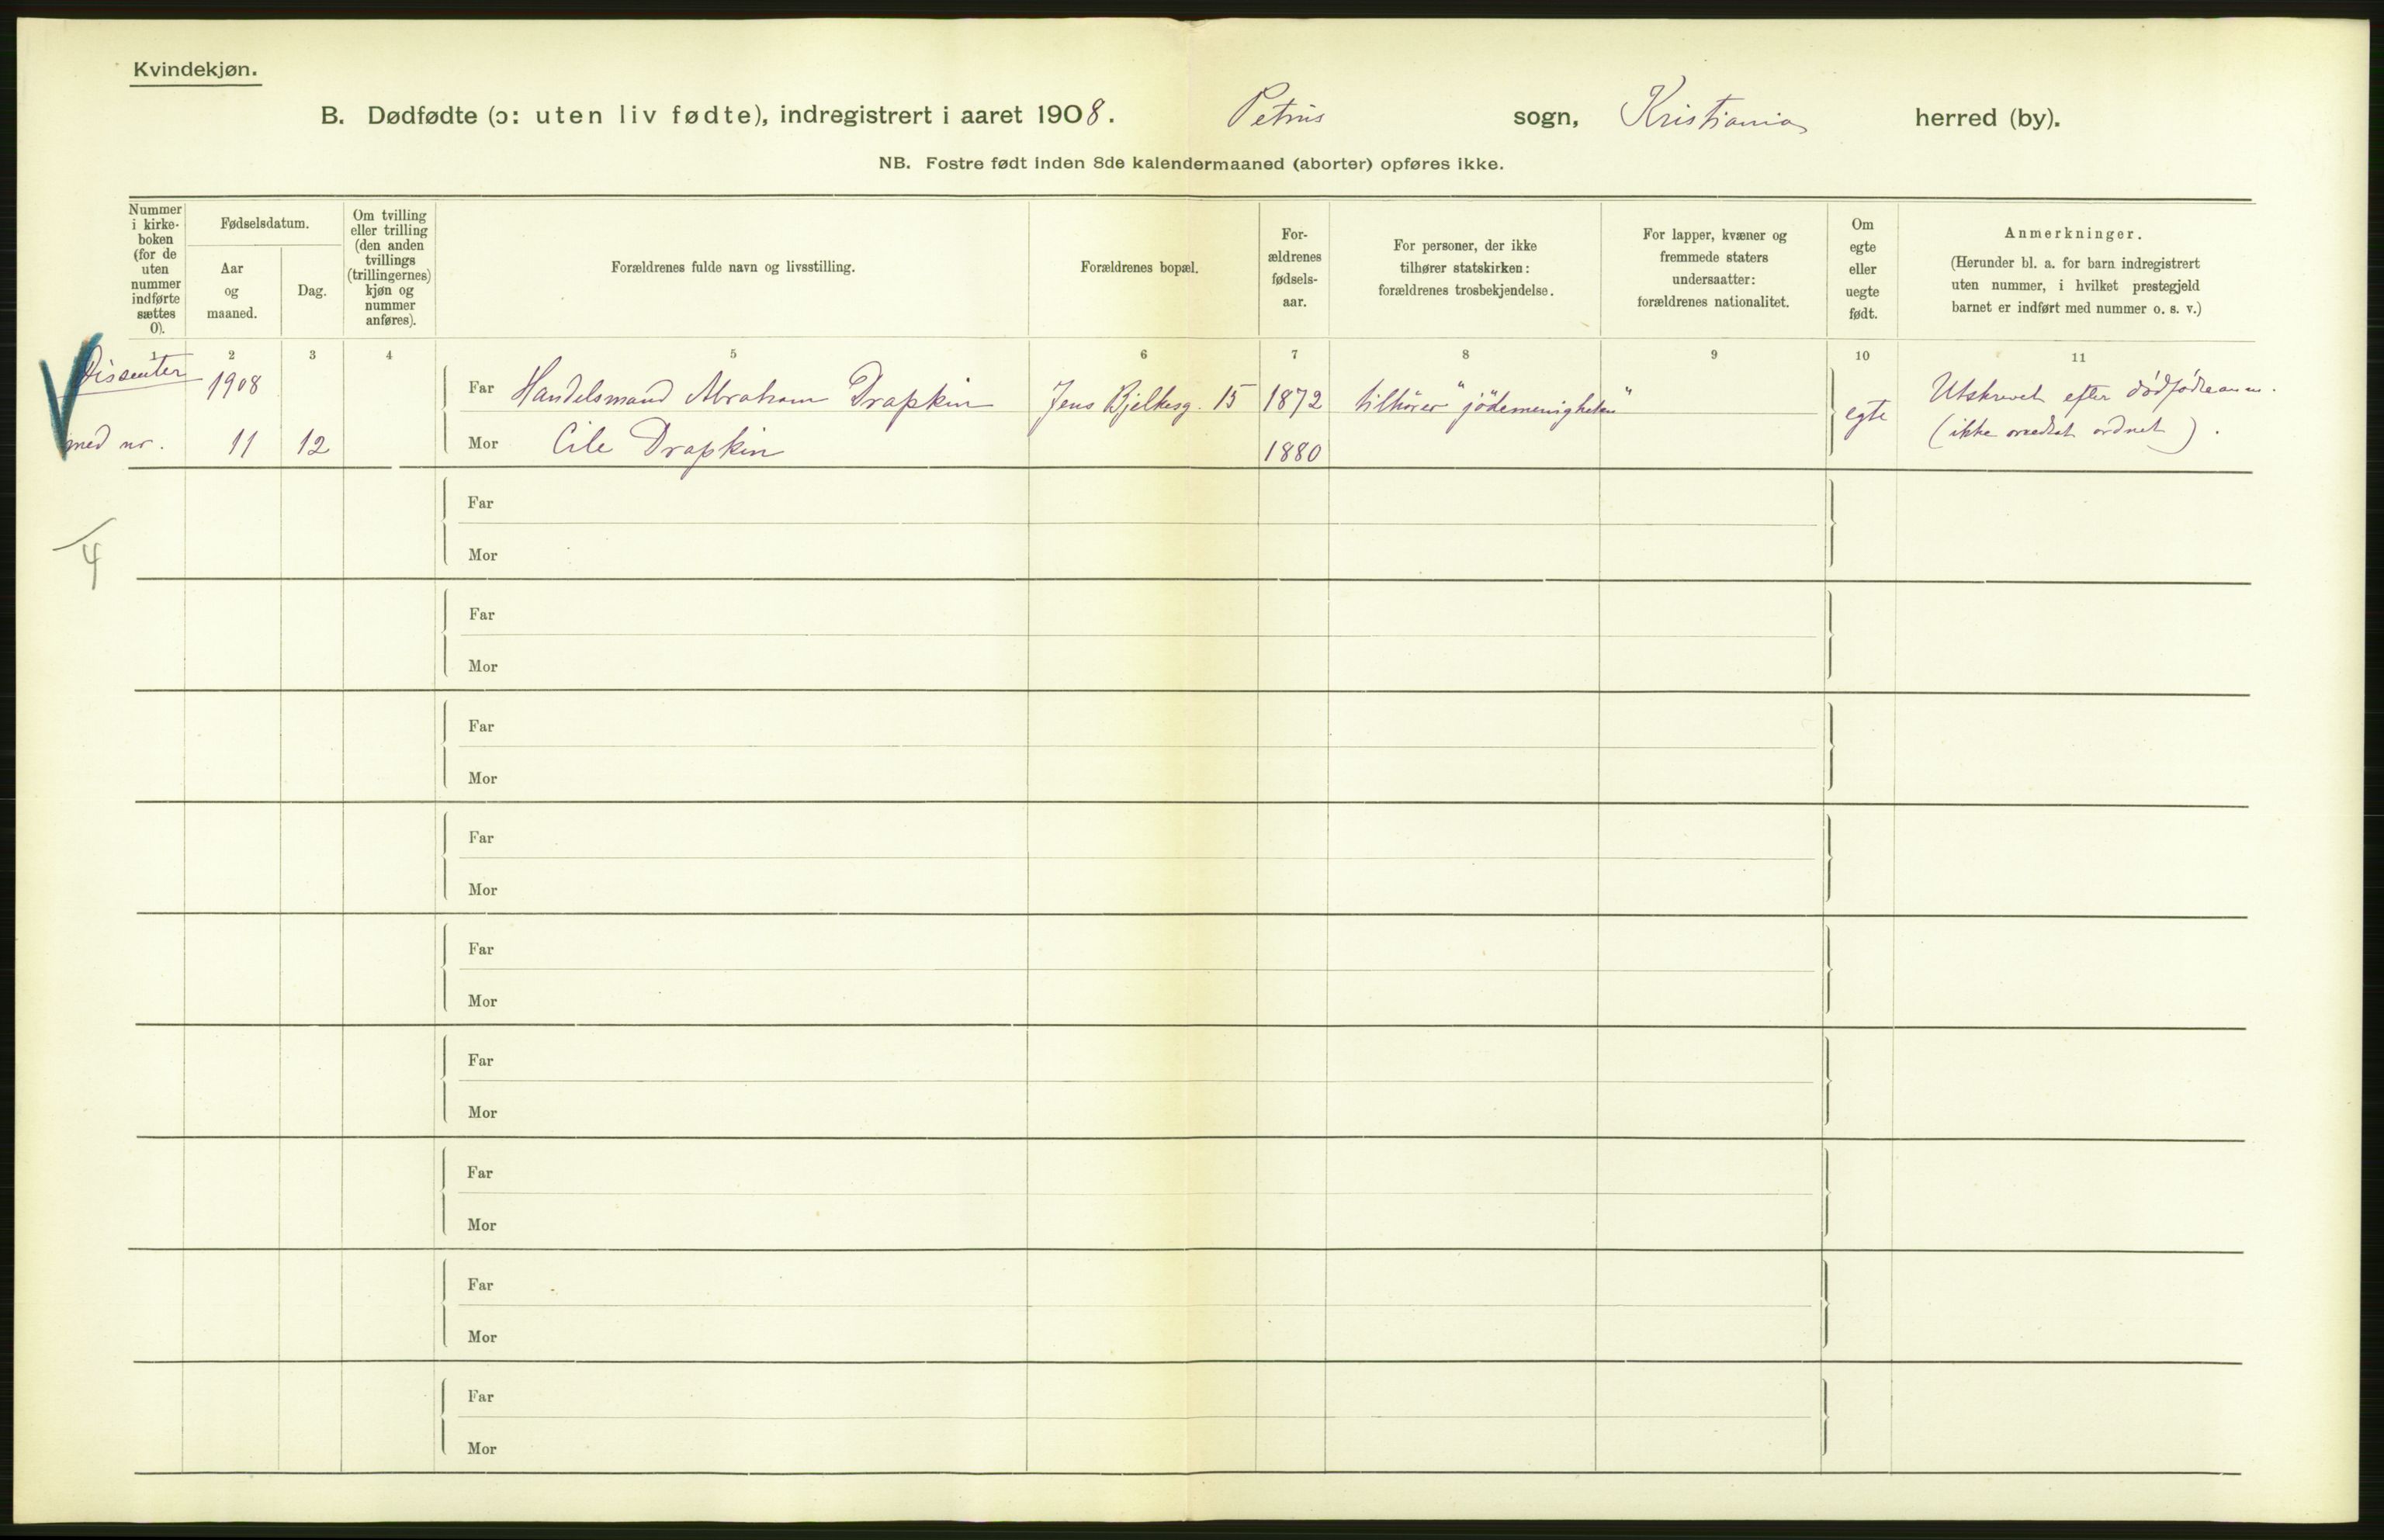 Kvindekjøn.
B. Dødfødte (ɔ: uten liv fødte), indregistrert i aaret 1908. Petrus sogn, Kristiania herred (by).
NB. Fostre født inden 8de kalendermaaned (aborter) opføres ikke.
Nummer
i kirke-
boken
(for de
uten
nummer
indførte
sættes
0).
Fødselsdatum.
Aar
og
maaned.
Dag.
Om tvilling
eller trilling
(den anden
tvillings
(trillingernes)
kjøn og
nummer
anføres).
Forældrenes fulde navn og livsstilling.
Forældrenes bopæl.
For-
ældrenes
fødsels-
aar.
For personer, der ikke
tilhører statskirken:
forældrenes trosbekjendelse.
For lapper, kvæner og
fremmede staters
undersaatter:
forældrenes nationalitet.
Om
egte
eller
uegte
født.
Anmerkninger.
(Herunder bl. a. for barn indregistrert
uten nummer, i hvilket prestegjeld
barnet er indført med nummer o. s. v.)
1 2 3 4 5 6 7 8 9 10 11
Dissenter 1908 Far Handelsmand Abraham Drapkin Jens Bjelkesg. 15 1872 tilhører "jödemenigheten" egte Utskrevet efter dödfødteanm.
med nr. 11 12 Mor Cile Drapkin 1880 (ikke ordnet).
Far
4
Mor
Far
Mor
Far
Mor
Far
Mor
Far
Mor
Far
Mor
Far
Mor
Far
Mor
Far
Mor